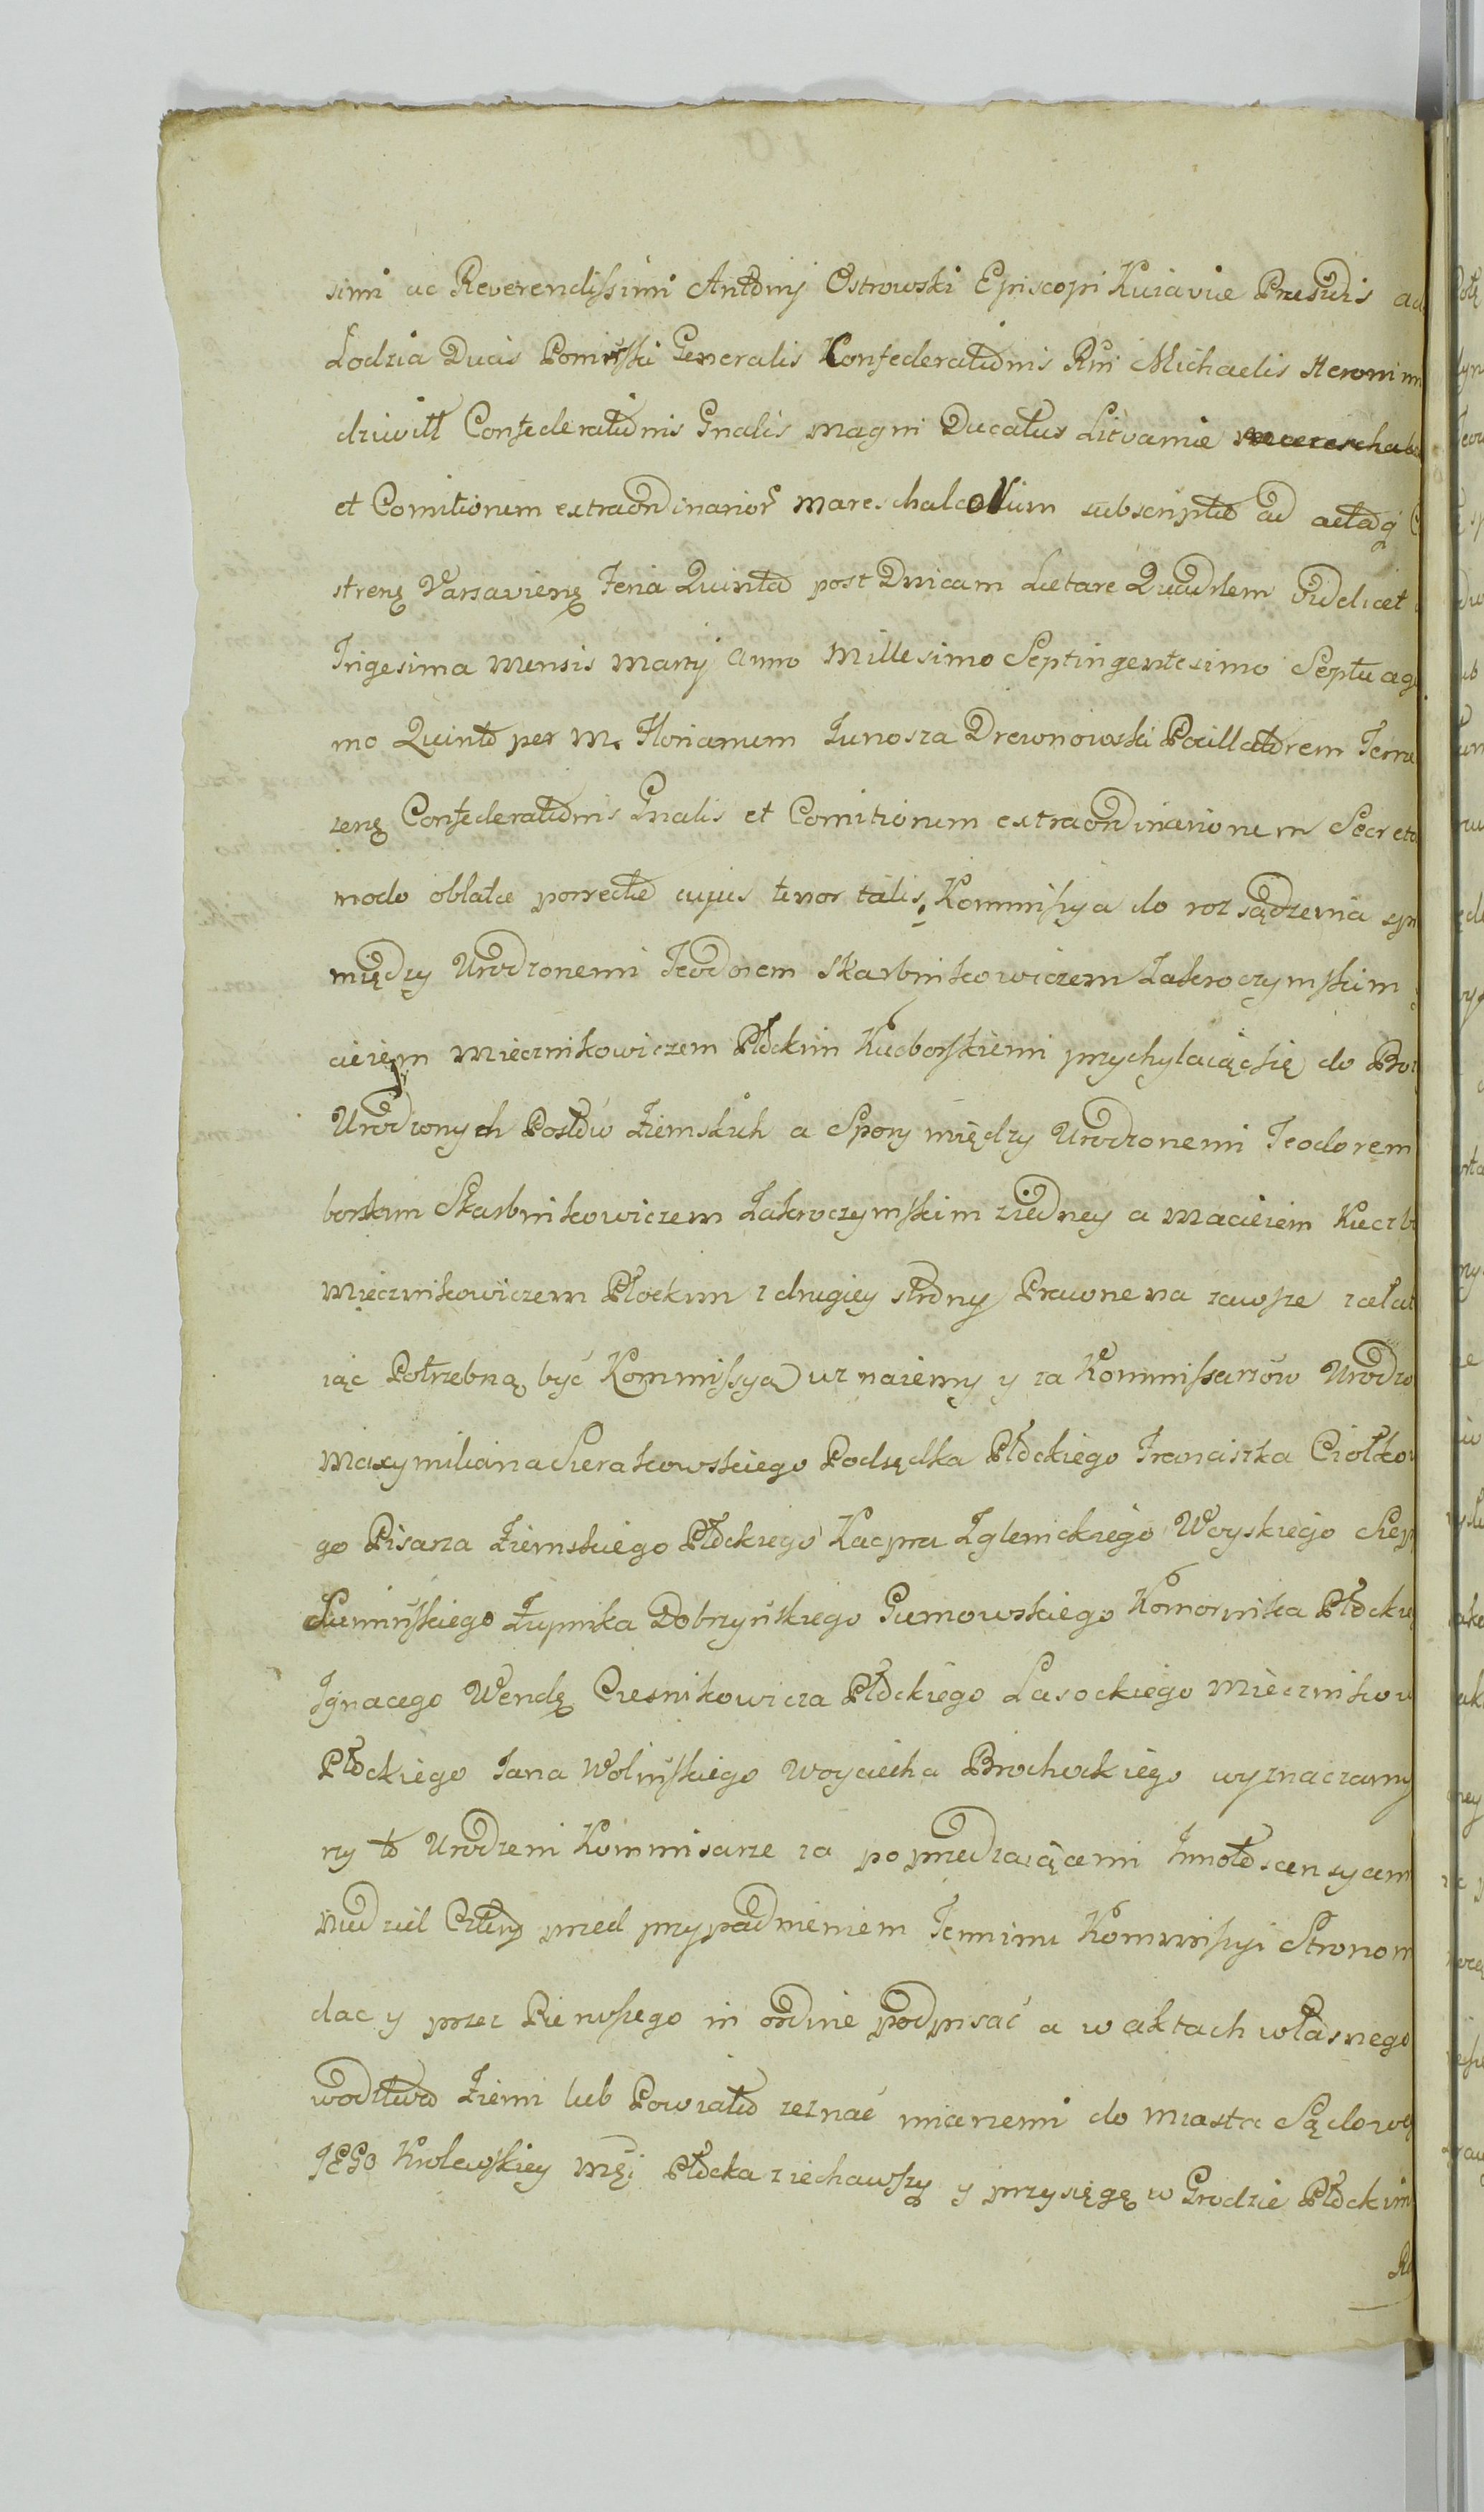 simi ac Reverendissimi Antonij Ostrowski Episcopi Kuiaviæ Præsidis ad
Lodzia Ducis Poniński Generalis Confederationis Rni Michaelis Heronim
dziwill Confederationis Gnalis magni Ducatus Litvaniæ
et Comitiorum extraordinarior mareschalcorum subscripto ad acta
stren Varsavien Feria Quinta post Dnicam Lætare Quadrlem Videlicet
Trigesima mensis Martij Anno Millesimo Septingentesimo Septuage
mo Quinto per M. Florianum Junosza Drewnowski Pocillatorem Terræ
zen Confederationis Gnalis et Comitiorum extraordinariorum Secreta
modo oblatæ porrecto cujus tenor talis: Kommissya do rozsądzenia spr
między Urodzonemi Teodorem Skarbnikowiczem Zakroczymskim
cieiem Miecznikowiczem Płockim Kucborskiemi przychylaiąc się do Proz
Urodzonych Posłow Ziemskich a Spory między Urodzonemi Teodorem
borskim Skarbnikowiczem Zakroczymskim z iedney a Macieiem Kuczb
Miecznikowiczem Płockim z drugiey strony Prawne na zawsze załat
iąc Potrzebną być Kommissyą uznaiemy y za Kommissarzow Urodzo
Maxymiliana Sierakowskiego Podsędka Płockiego Franciszka Ciołkow
go Pisarza Ziemskiego Płockiego Kacpra Zglenickiego Woyskiego Sierp
Sumińskiego Łupnika Dobrzyńskiego Gumowskiego Komornika Płockie
Ignacego Wendę Czesnikowicza Płockiego Lasockiego Miecznikow
Płockiego Jana Wolińskiego Woyciecha Brochockiego wyznaczamy
rzy to Urodzeni Kommisarze za poprzedzaiącemi Innotescensyam
niedziel Cztery przed przypadnieniem Terminu Kommissyi Stronom
dac y przez Pierwszego in ordine podpisać a w aktach własnego
wodztwa Ziemi lub Powiatu zeznać mianemi do miasta Sądowe
JEGO Krolewskiey Mci Płocka ziechawszy y przysięgę w Grodzie Płockim